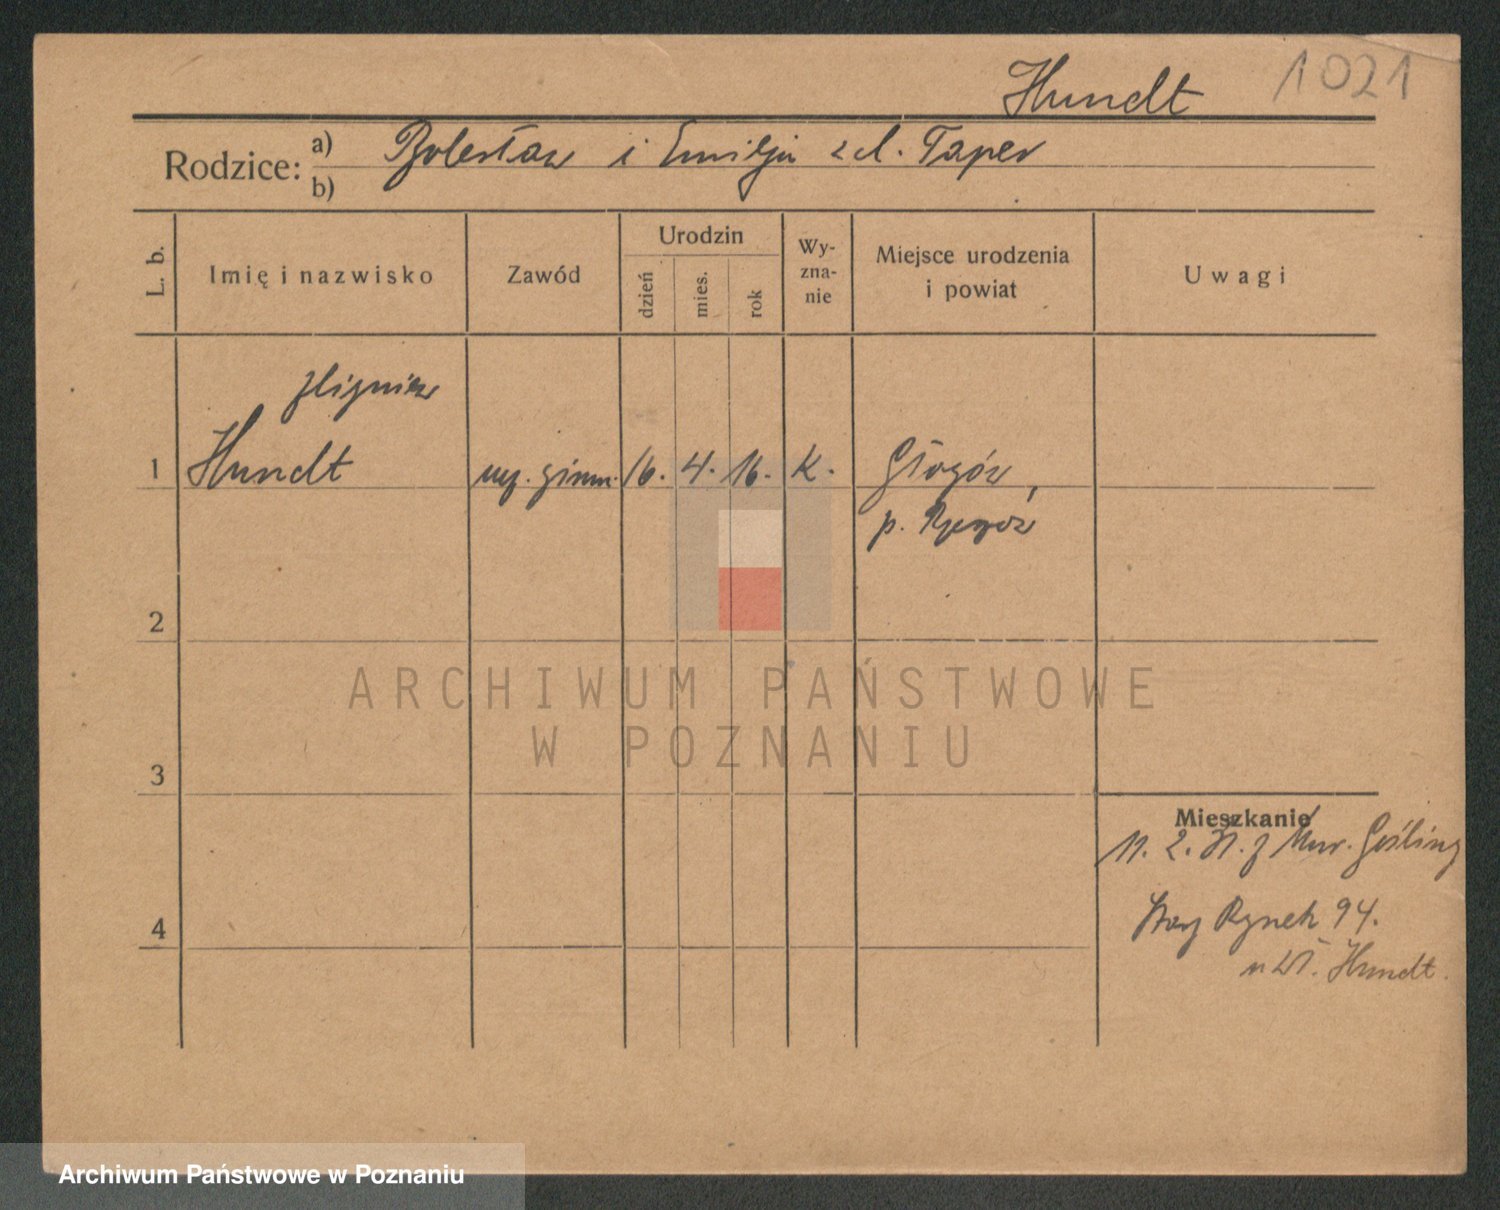 1021
Hundt
Rodzice:
a) Bolesław i Emilja z d. Taper
b)
L. b.
Imię i nazwisko
Zawód
Urodzin
dzień
mies.
rok
Wy-
zna-
nie
Miejsce urodzenia
i powiat
Uwagi
Zbigniew
1 Hundt
ucz. gimn. 16. 4. 16. K. Głogów,
p.
2
3
4
Mieszkanie
11. 2. 31. z Mur. Gośliny
Stary Rynek 94.
u Wł. Hundt.
ARCHIWUM PAŃSTWOWE
W POZNANIU
Archiwum Państwowe w Poznaniu